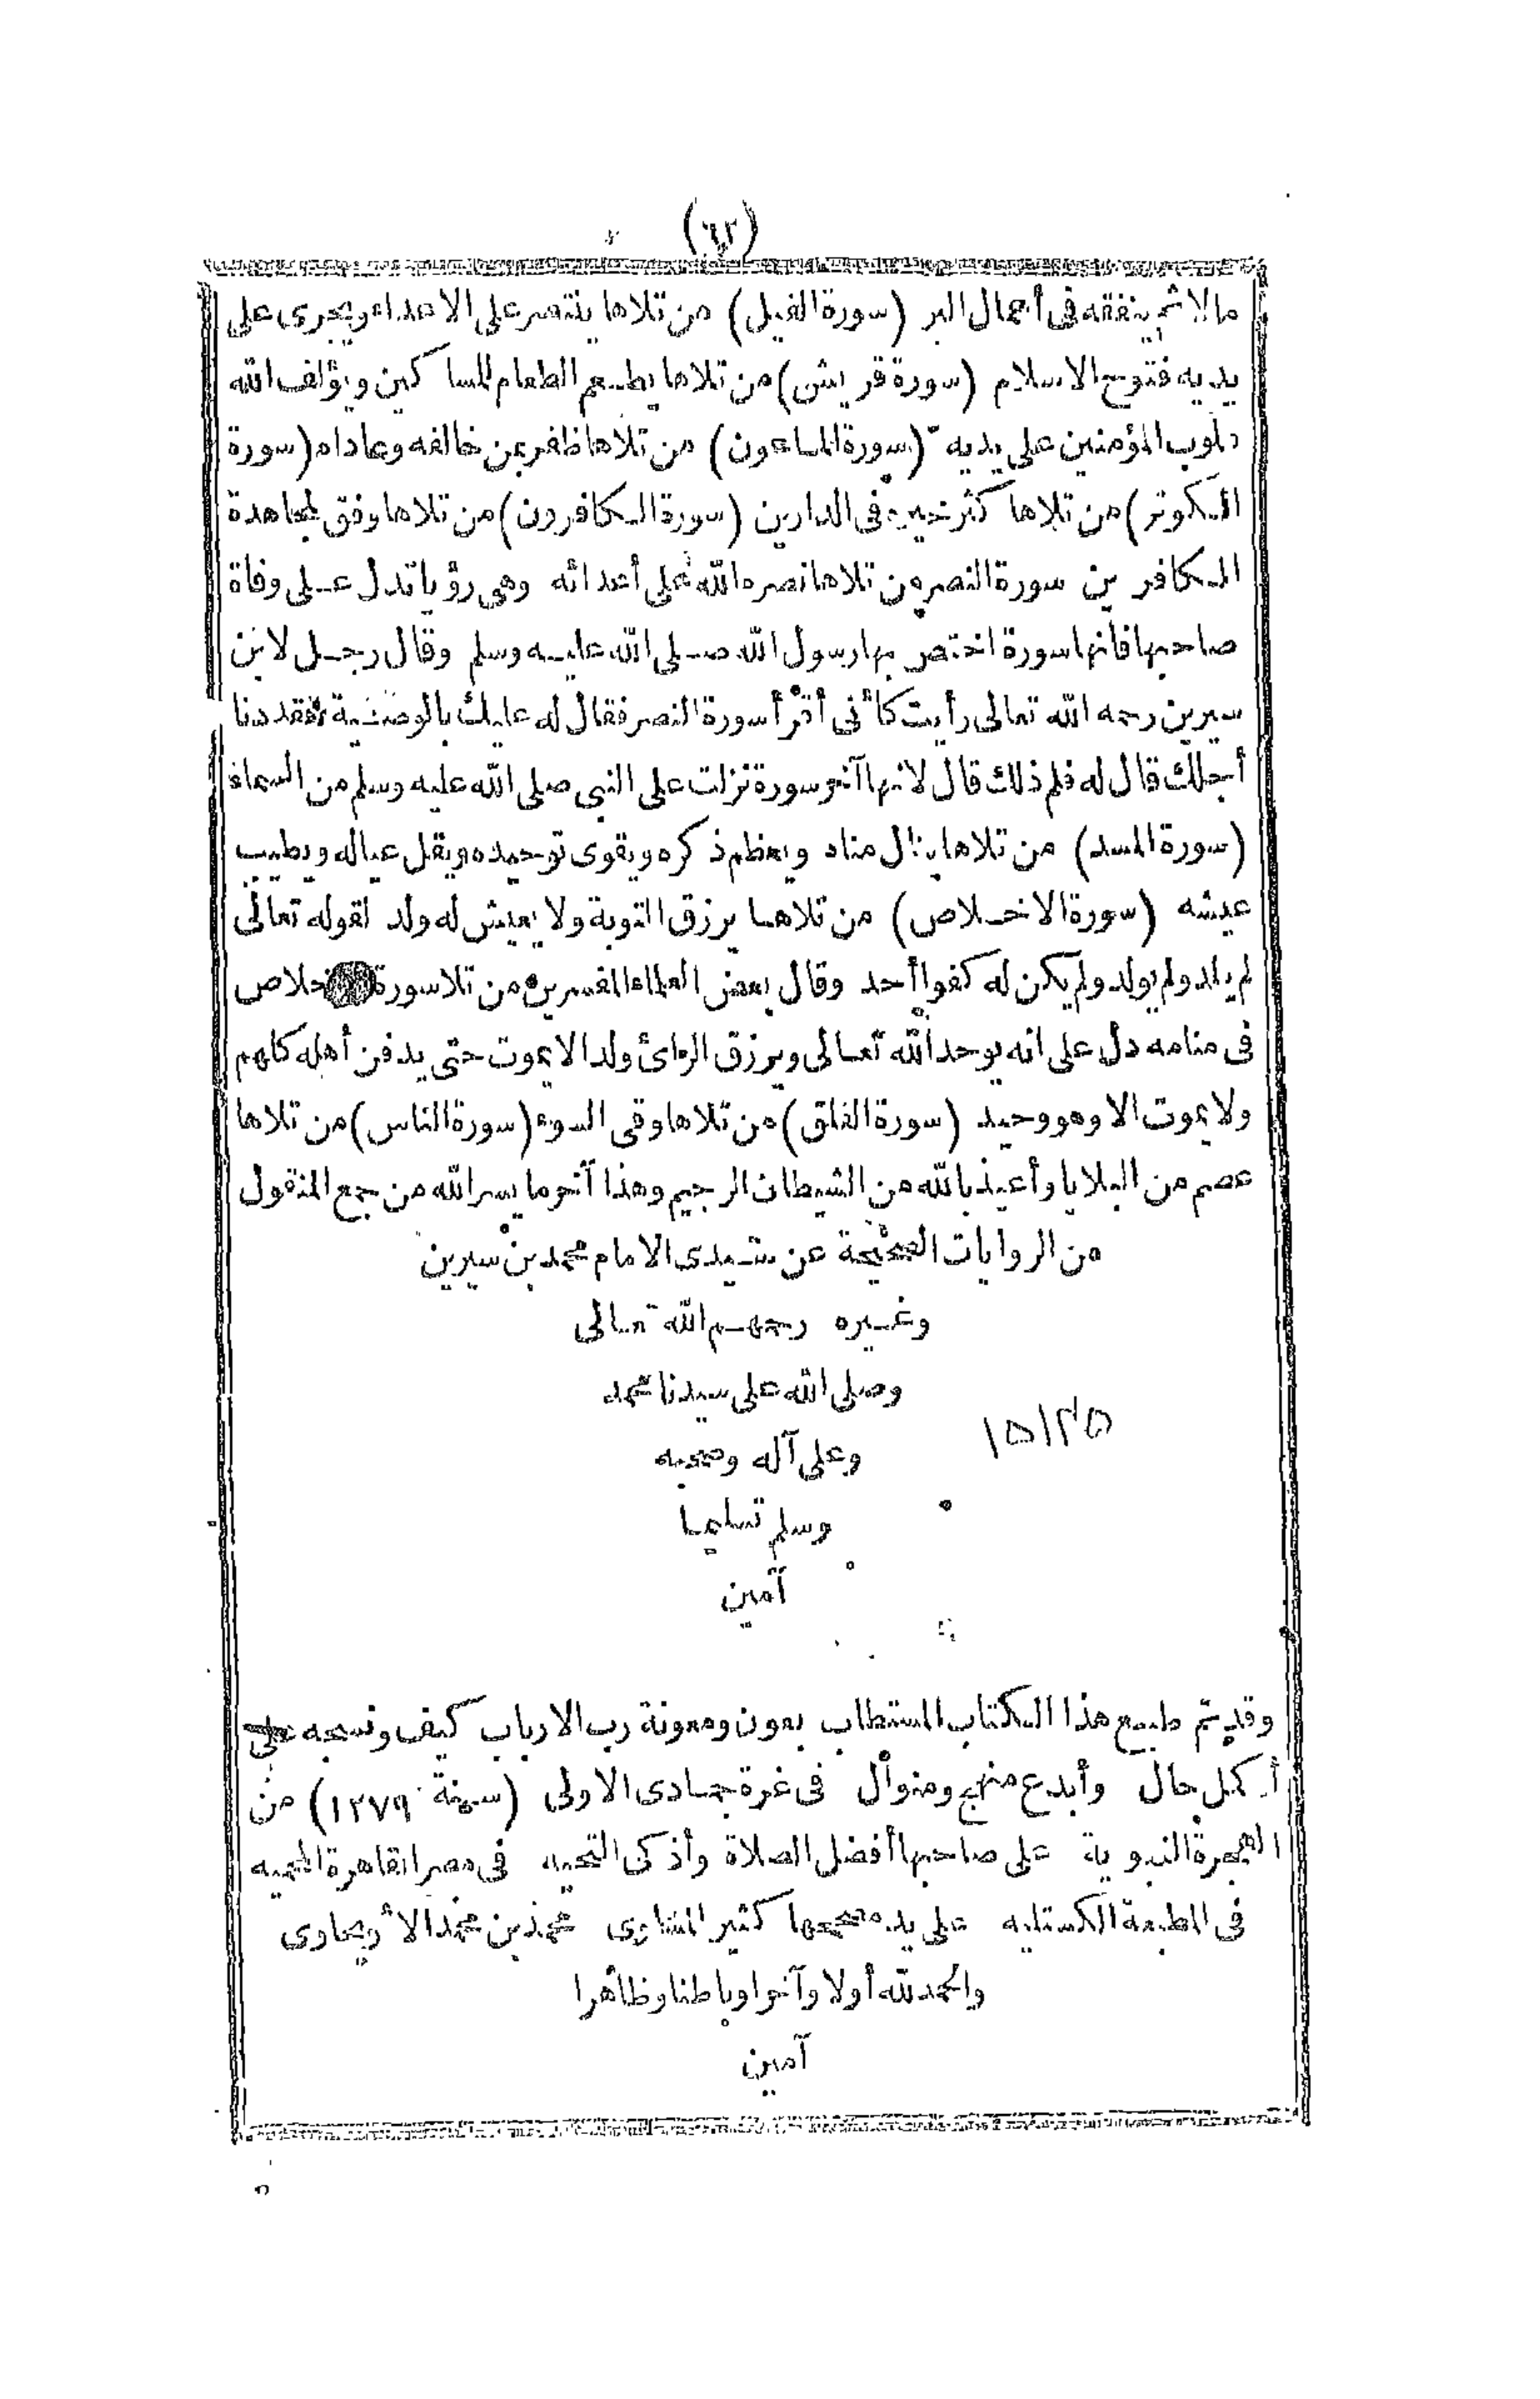 (٦٢)
مالا ثم ينفقه فى أعمال البر (سورة الفيل) من تلاها ينتصر على الاعداء ويجرى على
يديه فتوح الاسلام (سورة قريش) من تلاها يطعم الطعام للمساكين ويؤلف الله
قلوب المؤمنين على يديه (سورة الماعون) من تلاها ظفر بمن خالفه وعاداه (سورة
الكوثر) من تلاها كثر خيره فى الدارين (سورة الكافرون) من تلاها وفق لمجاهدة
الكافرين سورة النصر من تلاها نصره الله على أعدائه وهى رؤيا تدل على وفاة
صاحبها فانها سورة اختص بها رسول الله صلى الله عليه وسلم وقال رجل لابن
سيرين رحمه الله تعالى رأيت كأنى أقرأ سورة النصر فقال له عليك بالوصية فقد دنا
أجلك قال له فلم ذلك قال لانها آخر سورة نزلت على النبى صلى الله عليه وسلم من السماء
(سورة المسد) من تلاها ينال مناه ويعظم ذكره ويقوى توحيده ويقل عياله ويطيب
عيشه (سورة الاخلاص) من تلاها يرزق التوبة ولا يعيش له ولد لقوله تعالى
لم يلد ولم يولد ولم يكن له كفوا أحد وقال بعض العلماء المفسرين من تلا سورة الاخلاص
فى منامه دل على انه يوحد الله تعالى ويرزق الرائى ولدا لا يموت حتى يدفن أهله كلهم
ولا يموت الا وهو وحيد (سورة الفلق) من تلاها وقى السوء (سورة الناس) من تلاها
عصم من البلايا وأعيذ بالله من الشيطان الرجيم وهذا آخر ما يسر الله من جمع المنقول
من الروايات الصحيحة عن سيدى الامام محمد بن سيرين
وغيره رحمهم الله تعالى
وصلى الله على سيدنا محمد
١٥١٢٥
وعلى آله وصحبه
وسلم تسليما
آمين
وقد تم طبع هذا الكتاب المستطاب بعون ومعونة رب الارباب كيف ونسجه على
أكمل حال وأبدع منهج ومنوال فى غرة جمادى الاولى (سنة ١٢٧٩) من
الهجرة النبوية على صاحبها أفضل الصلاة وأذكى التحيه فى مصر القاهرة المحميه
فى المطبعة الكستليه على يد مصححها كثير المساوى محمد بن محمد
والحمد لله أولا وآخرا وباطنا وظاهرا
آمين